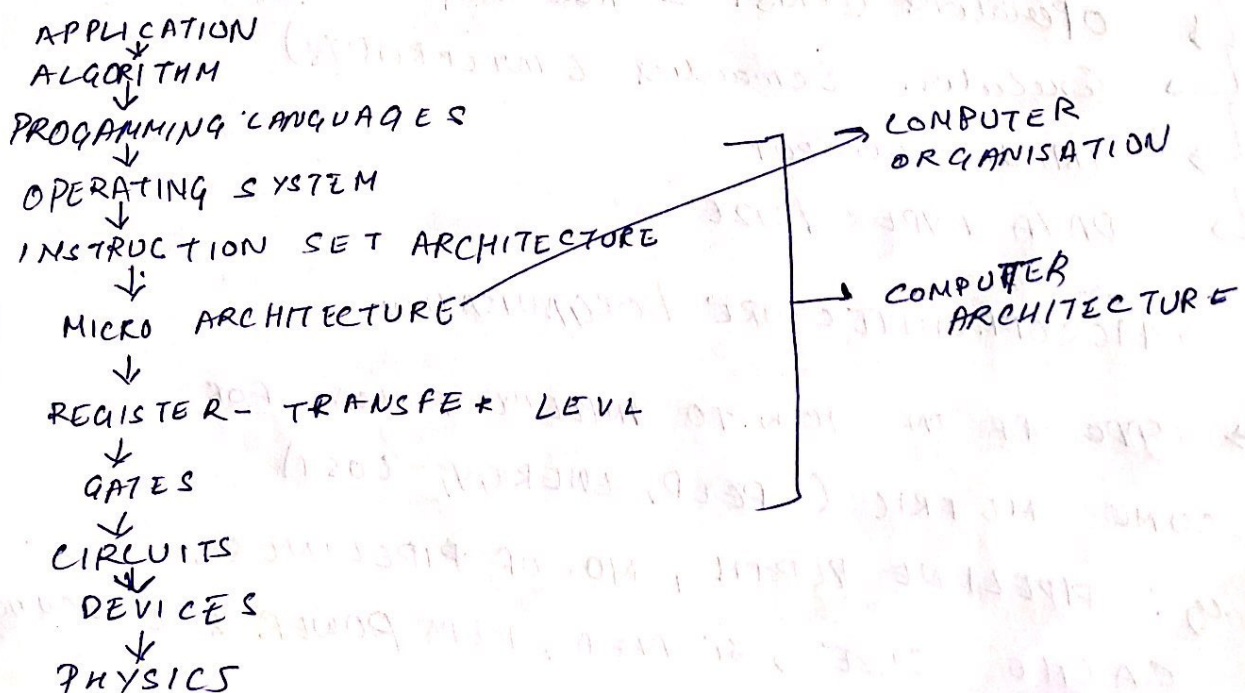 APPLICATION
ALGORITHM
PROGAMMING LANGUAGES
OPERATING SYSTEM
INSTRUCTION SET ARCHITECTURE
MICRO ARCHITECTURE
REGISTER- TRANSFER LEVL
GATES
CIRCUITS
DEVICES
PHYSICS
COMPUTER
ORGANISATION
COMPUTER
ARCHITECTURE